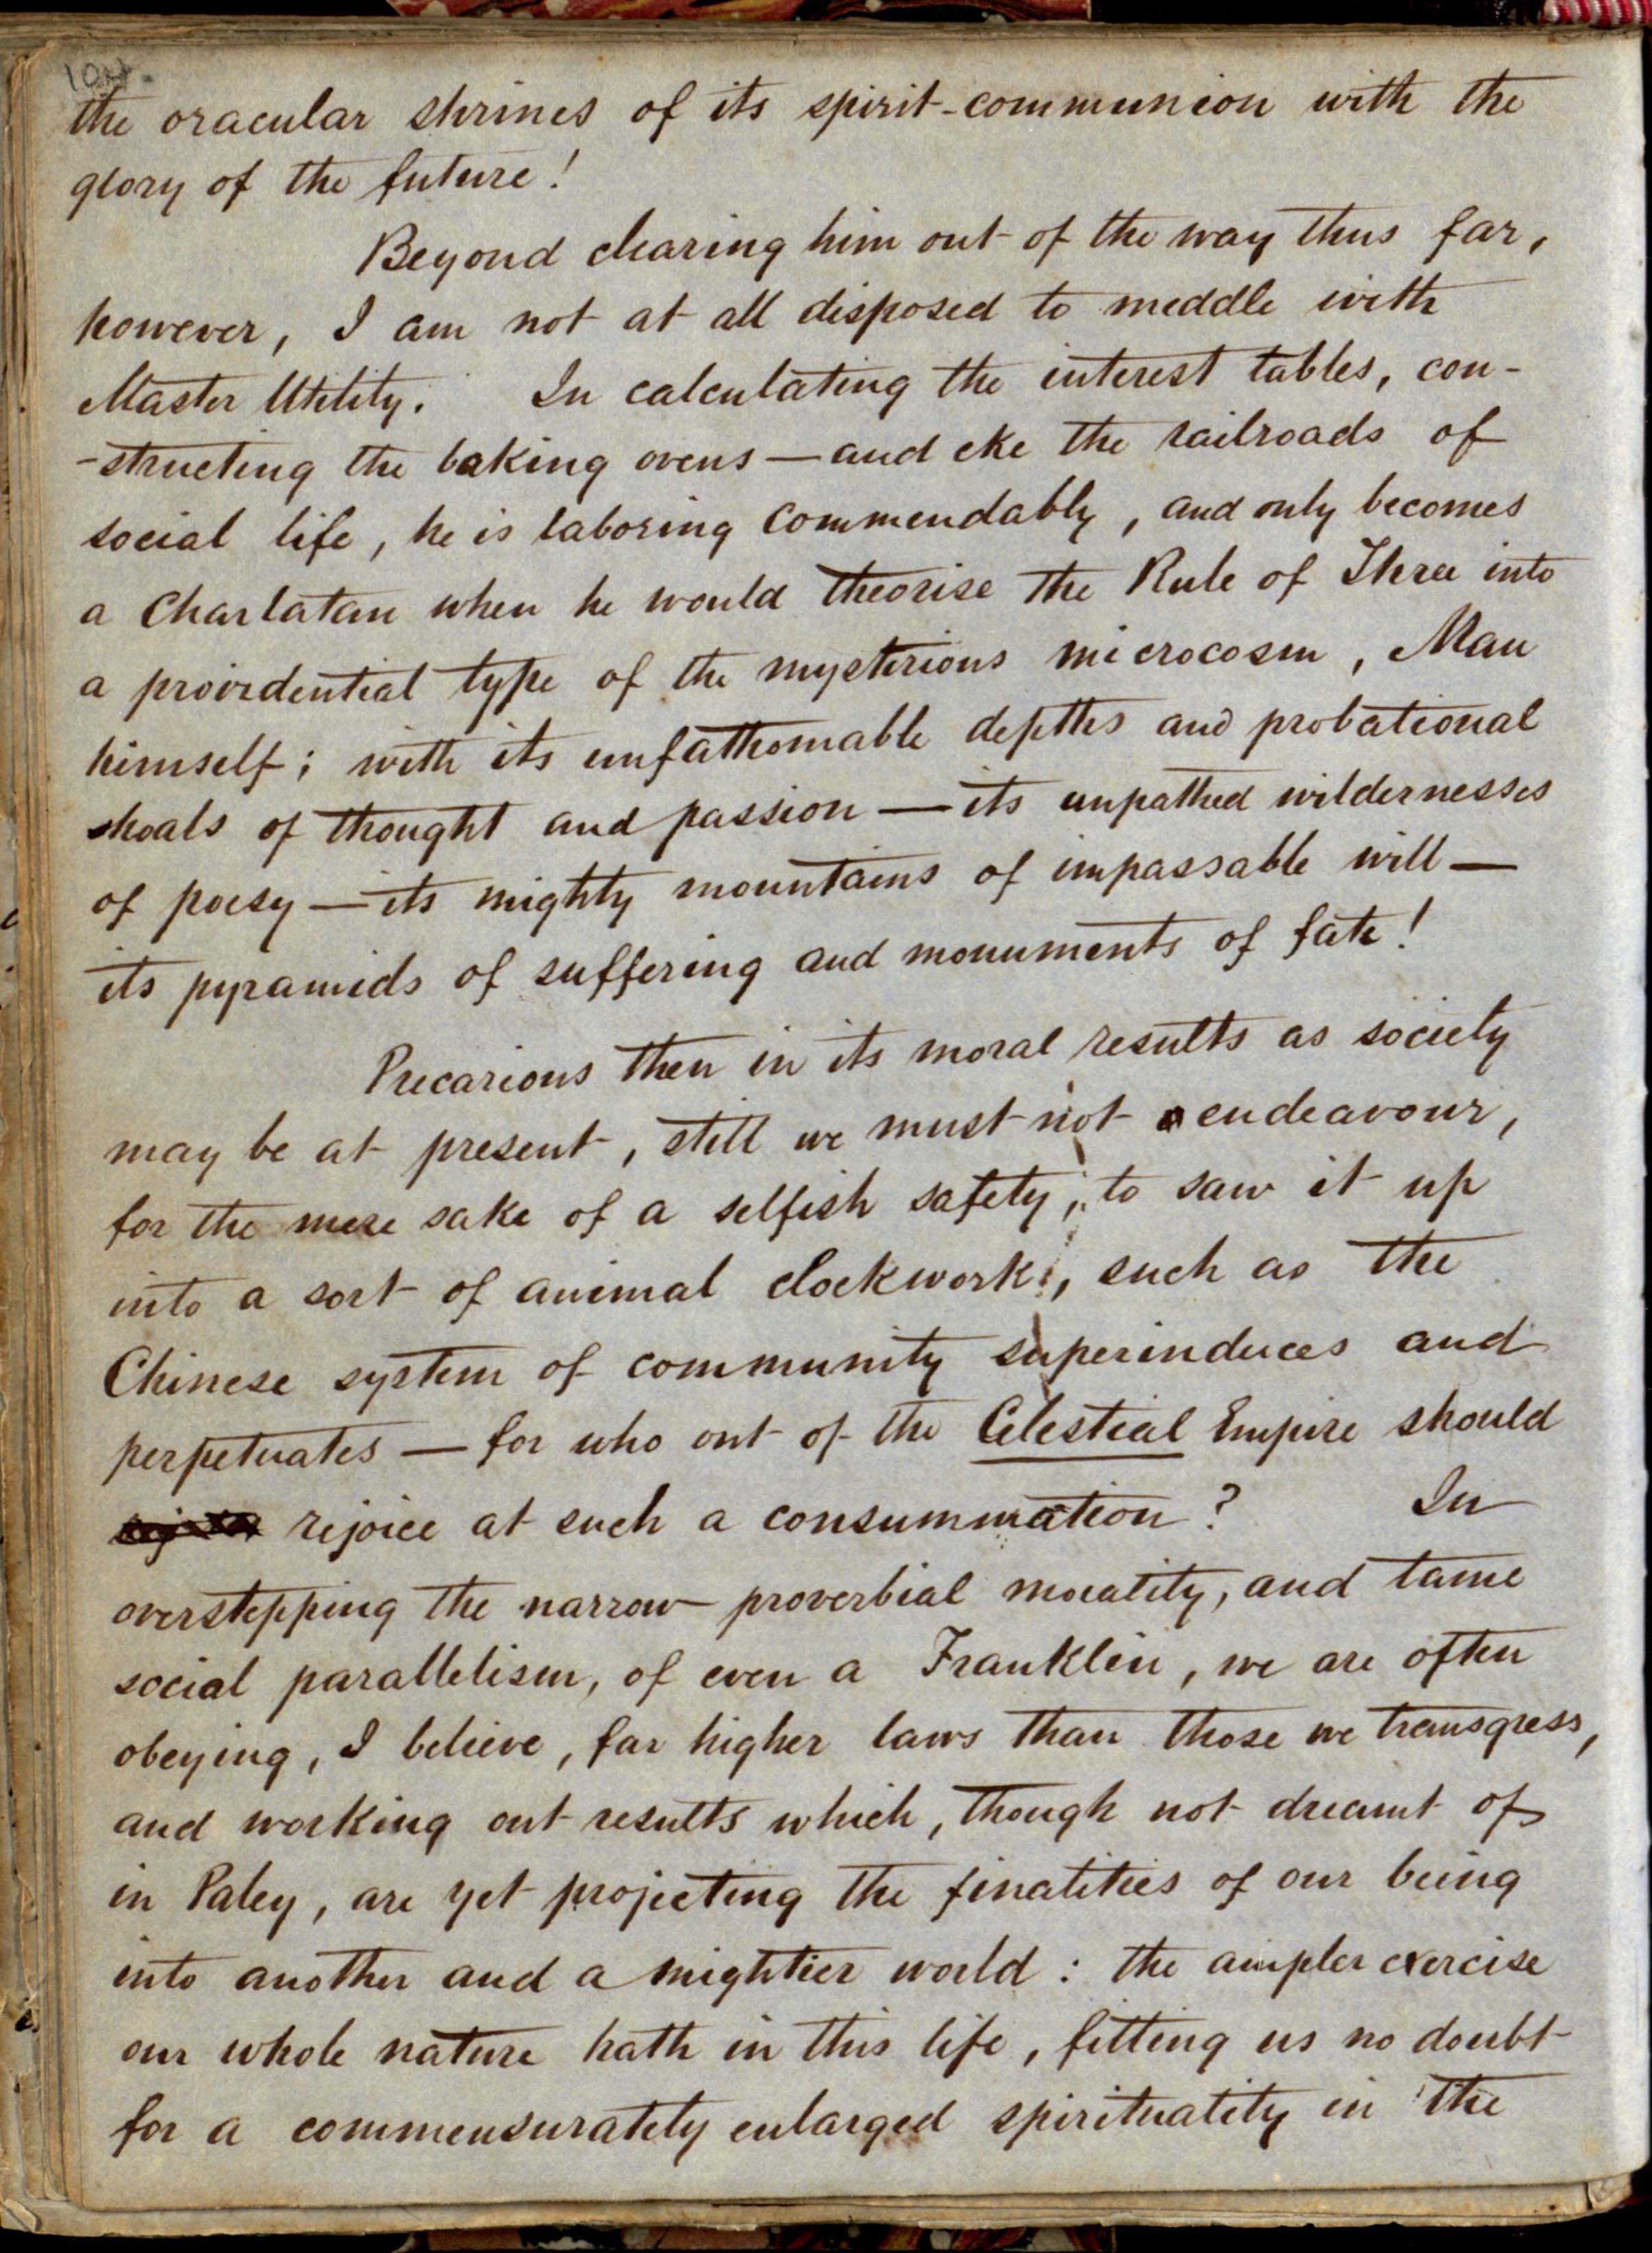 104.
the oracular shrines of its spirit-communion with the
glory of the future!
Beyond clearing him out of the way thus far,
however, I am not at all disposed to meddle with
Master Utility. In calculating the interest tables, con-
-structing the baking ovens — and eke the railroads of
social life, he is laboring commendably, and only becomes
a Charlatan when he would theorise the Rule of Three into
a providential type of the mysterious microcosm, Man
himself; with its unfathomable depths and probational
shoals of thought and passion — its unpathed wildernesses
of poesy — its mighty mountains of impassable will —
its pyramids of suffering and monuments of fate!
Precarious then in its moral results as society
may be at present, still we must not endeavour,
for the mere sake of a selfish safety, to saw it up
into a sort of animal clockwork, such as the
Chinese system of community superinduces and
perpetuates — for who out of the Celestial Empire should
rejoice at such a consummation? In
overstepping the narrow proverbial morality, and tame
social parallelism, of even a Franklin, we are often
obeying, I believe, far higher laws than those we transgress,
and working out results which, though not dreamt of
in Paley, are yet projecting the finalities of our being
into another and a mightier world: the ampler exercise
our whole nature hath in this life, fitting us no doubt
for a commensurately enlarged spirituality in the